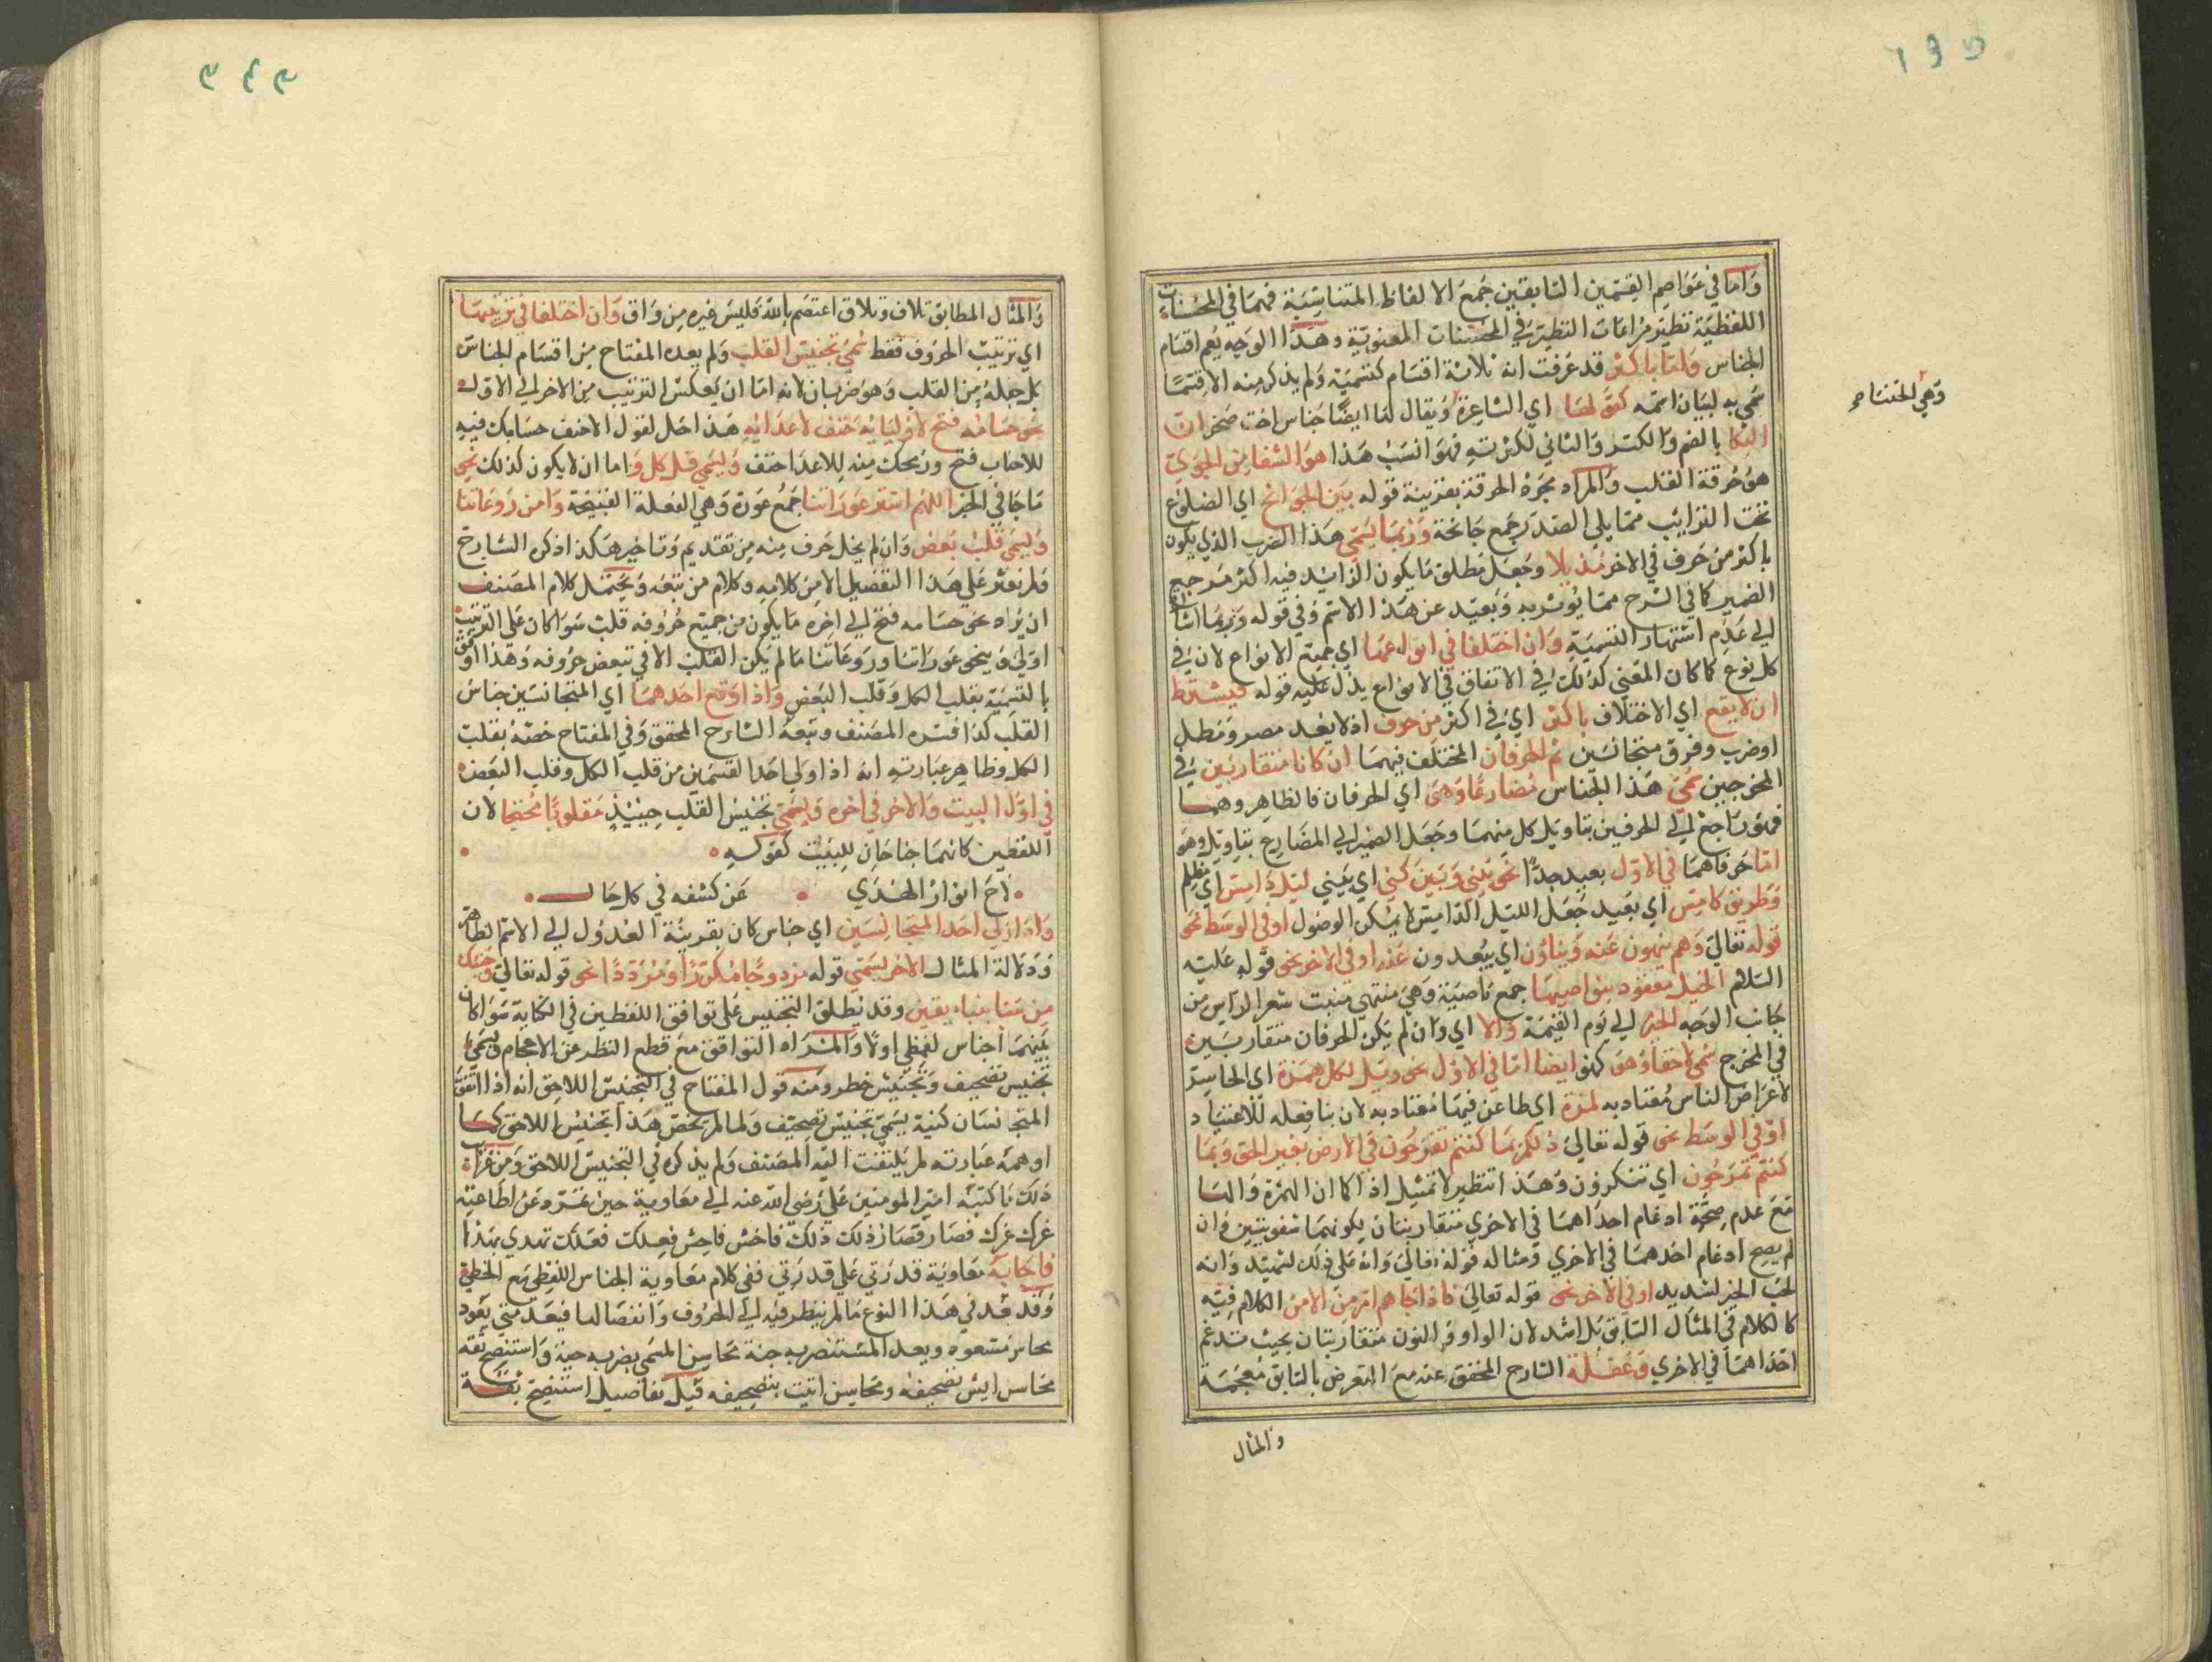 واما في عواصم القسمين السابقين جمع الالفاظ المتناسبة فهما في المحسنات
اللفظية نظير مراعات النظير في المحسنات المعنوية وهذا الوجه يعم اقسام
الجناس واما باكثر قد عرفت انه ثلاثة اقسام كتسميته ولم يذكر منه الا قسما
سمي به لبيان اسمه كقولها اي الشاعرة ويقال لها ايضا خناس اخت صخر ان
وهي الخنساء صح
البكا بالضم والكسر والثاني لكثرته فهو انسب هذا هو الشفا من الجوي
هو حرقة القلب والمراد مجرد الحرقة بقرينة قوله بين الجوانح اي الضلوع
تحت الترايب مما يلي الصدر جمع جانحة وربما يسمي هذا الضرب الذي يكون
باكثر من حرف في الاخر مذيلا وجعل مطلق ما يكون الزايد فيه اكثر مرجع
الضمير كما في الشرح مما يوثر به وبعيد عن هذا الاسم وفي قوله وربما اشارة
الي عدم اشتهار التسمية وان اختلفا في انواعها اي جميع الانواع لان في
كل نوع كما كان المعني كذلك في الاتفاق في الانواع يدل عليه قوله فيشترط
ان لا يقع اي الاختلاف باكثر اي في اكثر من حرف اذ لا يعد مصر ومطل
او ضرب وفرق متجانسين ثم الحرفان المختلف فيهما ان كانا متقاربين في
المخرجين سمي هذا الجناس مضارعا وهي اي الحرفان فالظاهر وهما
فهو راجع الي الحرفين بتاويل كل منهما وجعل الضمير الي المضارع بتاويله وهو
اما حرفاهما في الاول بعيد جدا نحو بيني وبين كني اي بيني ليل دامس اي مظلم
وطريق طامس اي بعيد جعل الليل الدامس لا يمكن الوصول او في الوسط نحو
قوله تعالي وهم ينهون عنه وينأون اي يبعدون عنه او في الاخر نحو قوله عليه
السلام الخيل معقود بنواصيها جمع ناصية وهي منتهي منبت شعر الراس من
جانب الوجه الخير الي يوم القيمة والا اي وان لم يكن الحرفان متقاربين
في المخرج سمي لاحقا وهو كهو ايضا اما في الاول نحو ويل لكل همزة اي الحاسر
لاعراض الناس معتاد به لمزة اي طاعن فيها معتاد به لان بنا فعله للاعتياد
او في الوسط نحو قوله تعالي ذلكم بما كنتم تفرحون في الارض بغير الحق وبما
كنتم تمرحون اي تتكبرون وهذا تنظير لا تمثيل اذ الفا ان الهمزة والها
مع عدم صحة ادغام احداهما في الاخري متقاربتان بكونهما شفويتين وان
لم يصح ادغام احدهما في الاخري ومثاله قوله تعالي وانه علي ذلك لشهيد وانه
لحب الخير لشديد او في الاخر نحو قوله تعالي فاذا جاهم امر من الامن الكلام فيه
كالكلام في المثال السابق بل اشد لان الواو والنون متقاربتان بحيث تدغم
احداهما في الاخري وغفلة الشارح المحقق عنه مع التعرض بالسابق معجمة
والمثال
والمثال المطابق تلاف وتلاق اعتصم بالله فليس غيره من واق وان اختلفا في ترتيبها
اي ترتيب الحروف فقط سمي تجنيس القلب ولم يعده المفتاح من اقسام الجناس
بل جعله من القلب وهو ضربان لانه اما ان يعكس الترتيب من الاخر الي الاول
نحو حسامه فتح لاوليائه حتف لاعدائه هذا حل لقول الاحنف حسامك فيه
للاحباب فتح ورمحك منه للاعدا حتف ويسمي قلب كل واما ان لا يكون كذلك نحو
ما جا في الخبر اللهم استر عوراتنا جمع عورة وهي الفعلة القبيحة وامن روعاتنا
ويسمي قلب بعض وان لم يخل حرف منه من تقديم وتاخير هكذا ذكره الشارح
ولم نعثر علي هذا التفصيل الا من كلامه وكلام من تبعه ويحتمل كلام المصنف
ان يراد نحو حسامه فتح الي اخره ما يكون من جميع حروفه قلب سوا كان علي الترتيب
اولي وبنحو عوراتنا وروعاتنا ما لم يكن القلب الا في تبعض حروفه وهذا اوفق
بالتسمية بقلب الكل وقلب البعض واذا وقع احدهما اي المتجانسين جناس
القلب كذا فسره المصنف وتبعه الشارح المحقق وفي المفتاح خصه بقلب
الكل وظاهر عبارته انه اذا ولي احد القسمين من قلب الكل وقلب البعض
في اول البيت والاخر في اخره ويسمي تجنيس القلب حينيذ مقلوبا مجنحا لان
اللفظين كانهما جناحان للبيت كقوله
لاح انوار الهدي عن كشفه في كل حال
واذا ولي احد المتجانسين اي جناس كان بقرينة العدول الي الاسم الظاهر
ودلالة المثال الاخر يسمي قوله مزدوجا ومكررا ومرددا نحو قوله تعالي وجئتك
من سبا بنباء يقين وقد يطلق التجنيس علي توافق اللفظين في الكتابة سوا كان
بينهما جناس لفظي اولا والمراد التوافق مع قطع النظر عن الاعجام ويسمي
تجنيس تصحيف وتجنيس خط ومنه قول المفتاح في التجنيس اللاحق انه اذا اتفق
المتجانسان كتبة يسمي تجنيس تصحيف ولما لم يخص هذا بتجنيس اللاحق كما
اوهمه عبارته لم يلتفت اليه المصنف ولم يذكره في التجنيس اللاحق ومن غرائب
ذلك ما كتبه امير المومنين علي رضي الله عنه الي معاوية حين تمرد عن اطاعته
غرك عزك فصار قصار ذلك ذلك فاخش فاحش فعلك فعلك تهدي بهذا
فاجابه معاوية قدرتي علي قدرتي ففي كلام معاوية الجناس اللفظي مع الخطي
وقد عد في هذا النوع ما لم ينظر فيه الي الحروف وانفصالها فيعد متي يعود
مسعود ويعد المستنصريه جنة محاسن المسمي بضرب حية واستنصح ثقة
محاسن ايش تصحيفه ومحاسن اتيت بتصحيفه قيل تفاصيل استنصح ثقة